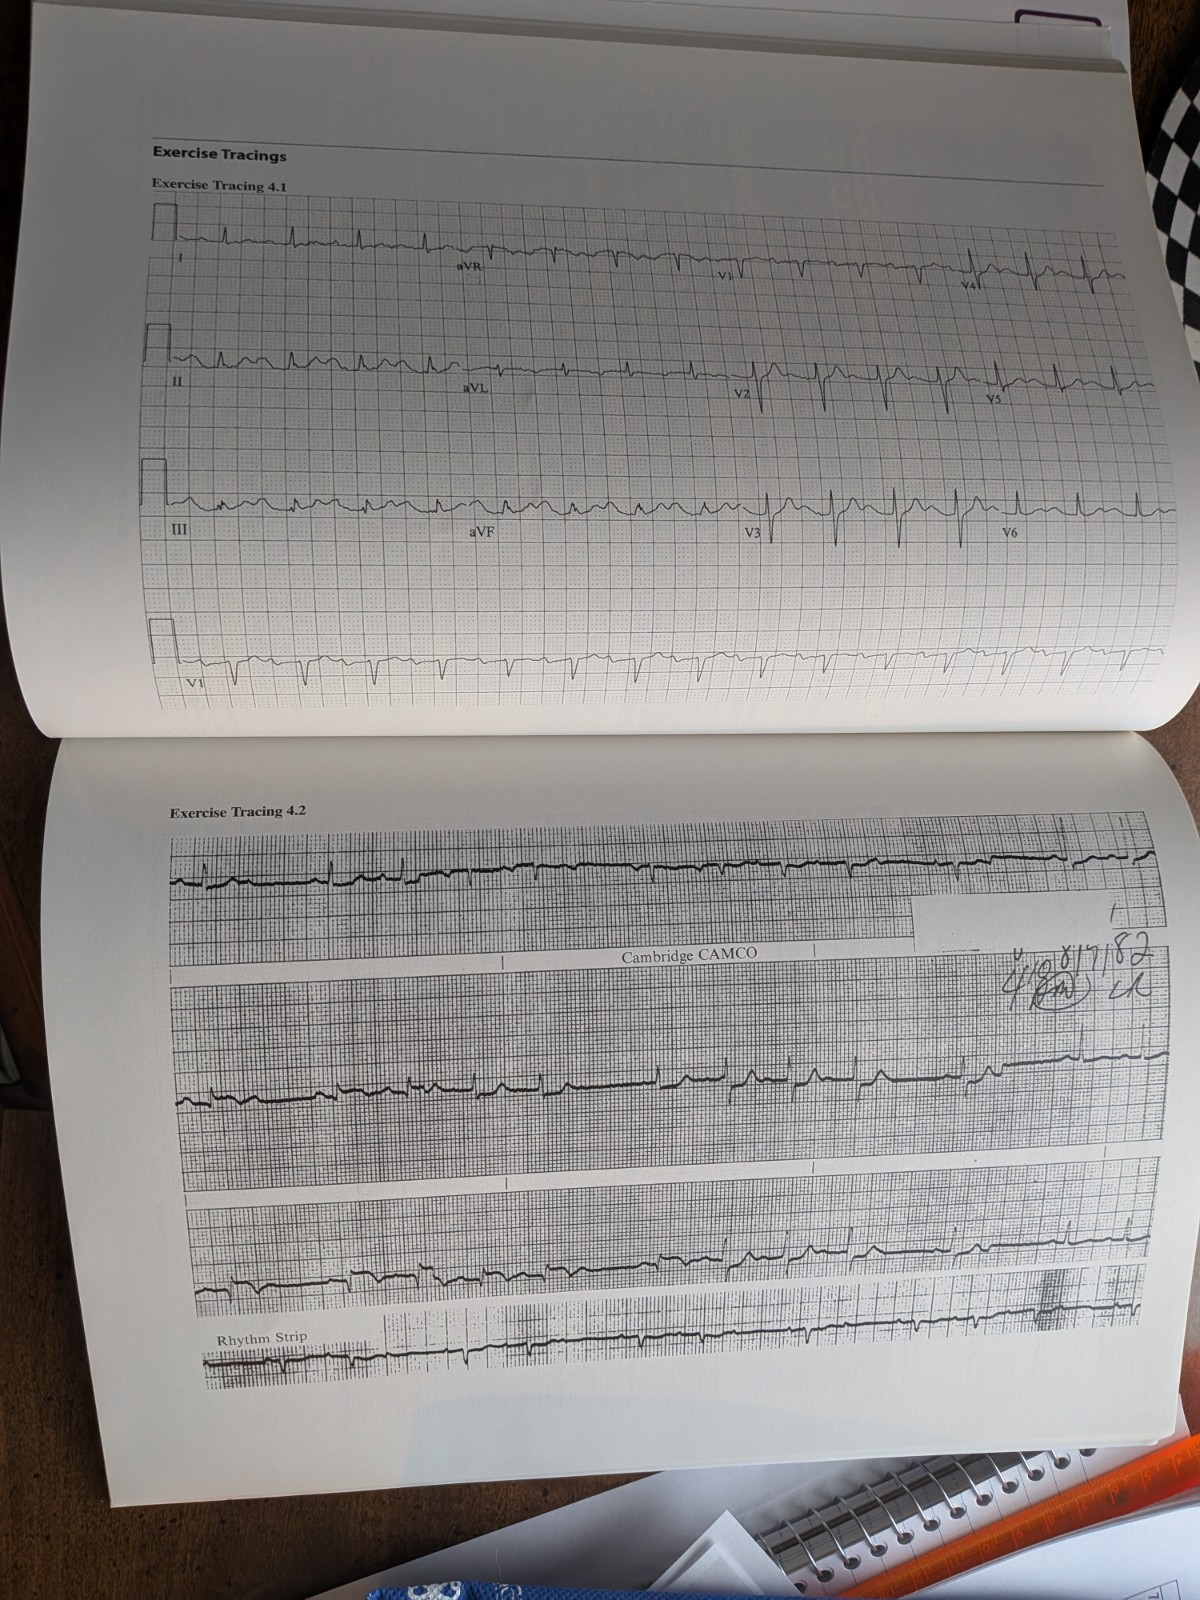 Exercise Tracings
Exercise Tracing 4.1
I aVR V1 V4
II aVL V2 V5
III aVF V3 V6
V1
Exercise Tracing 4.2
Cambridge CAMCO
Rhythm Strip